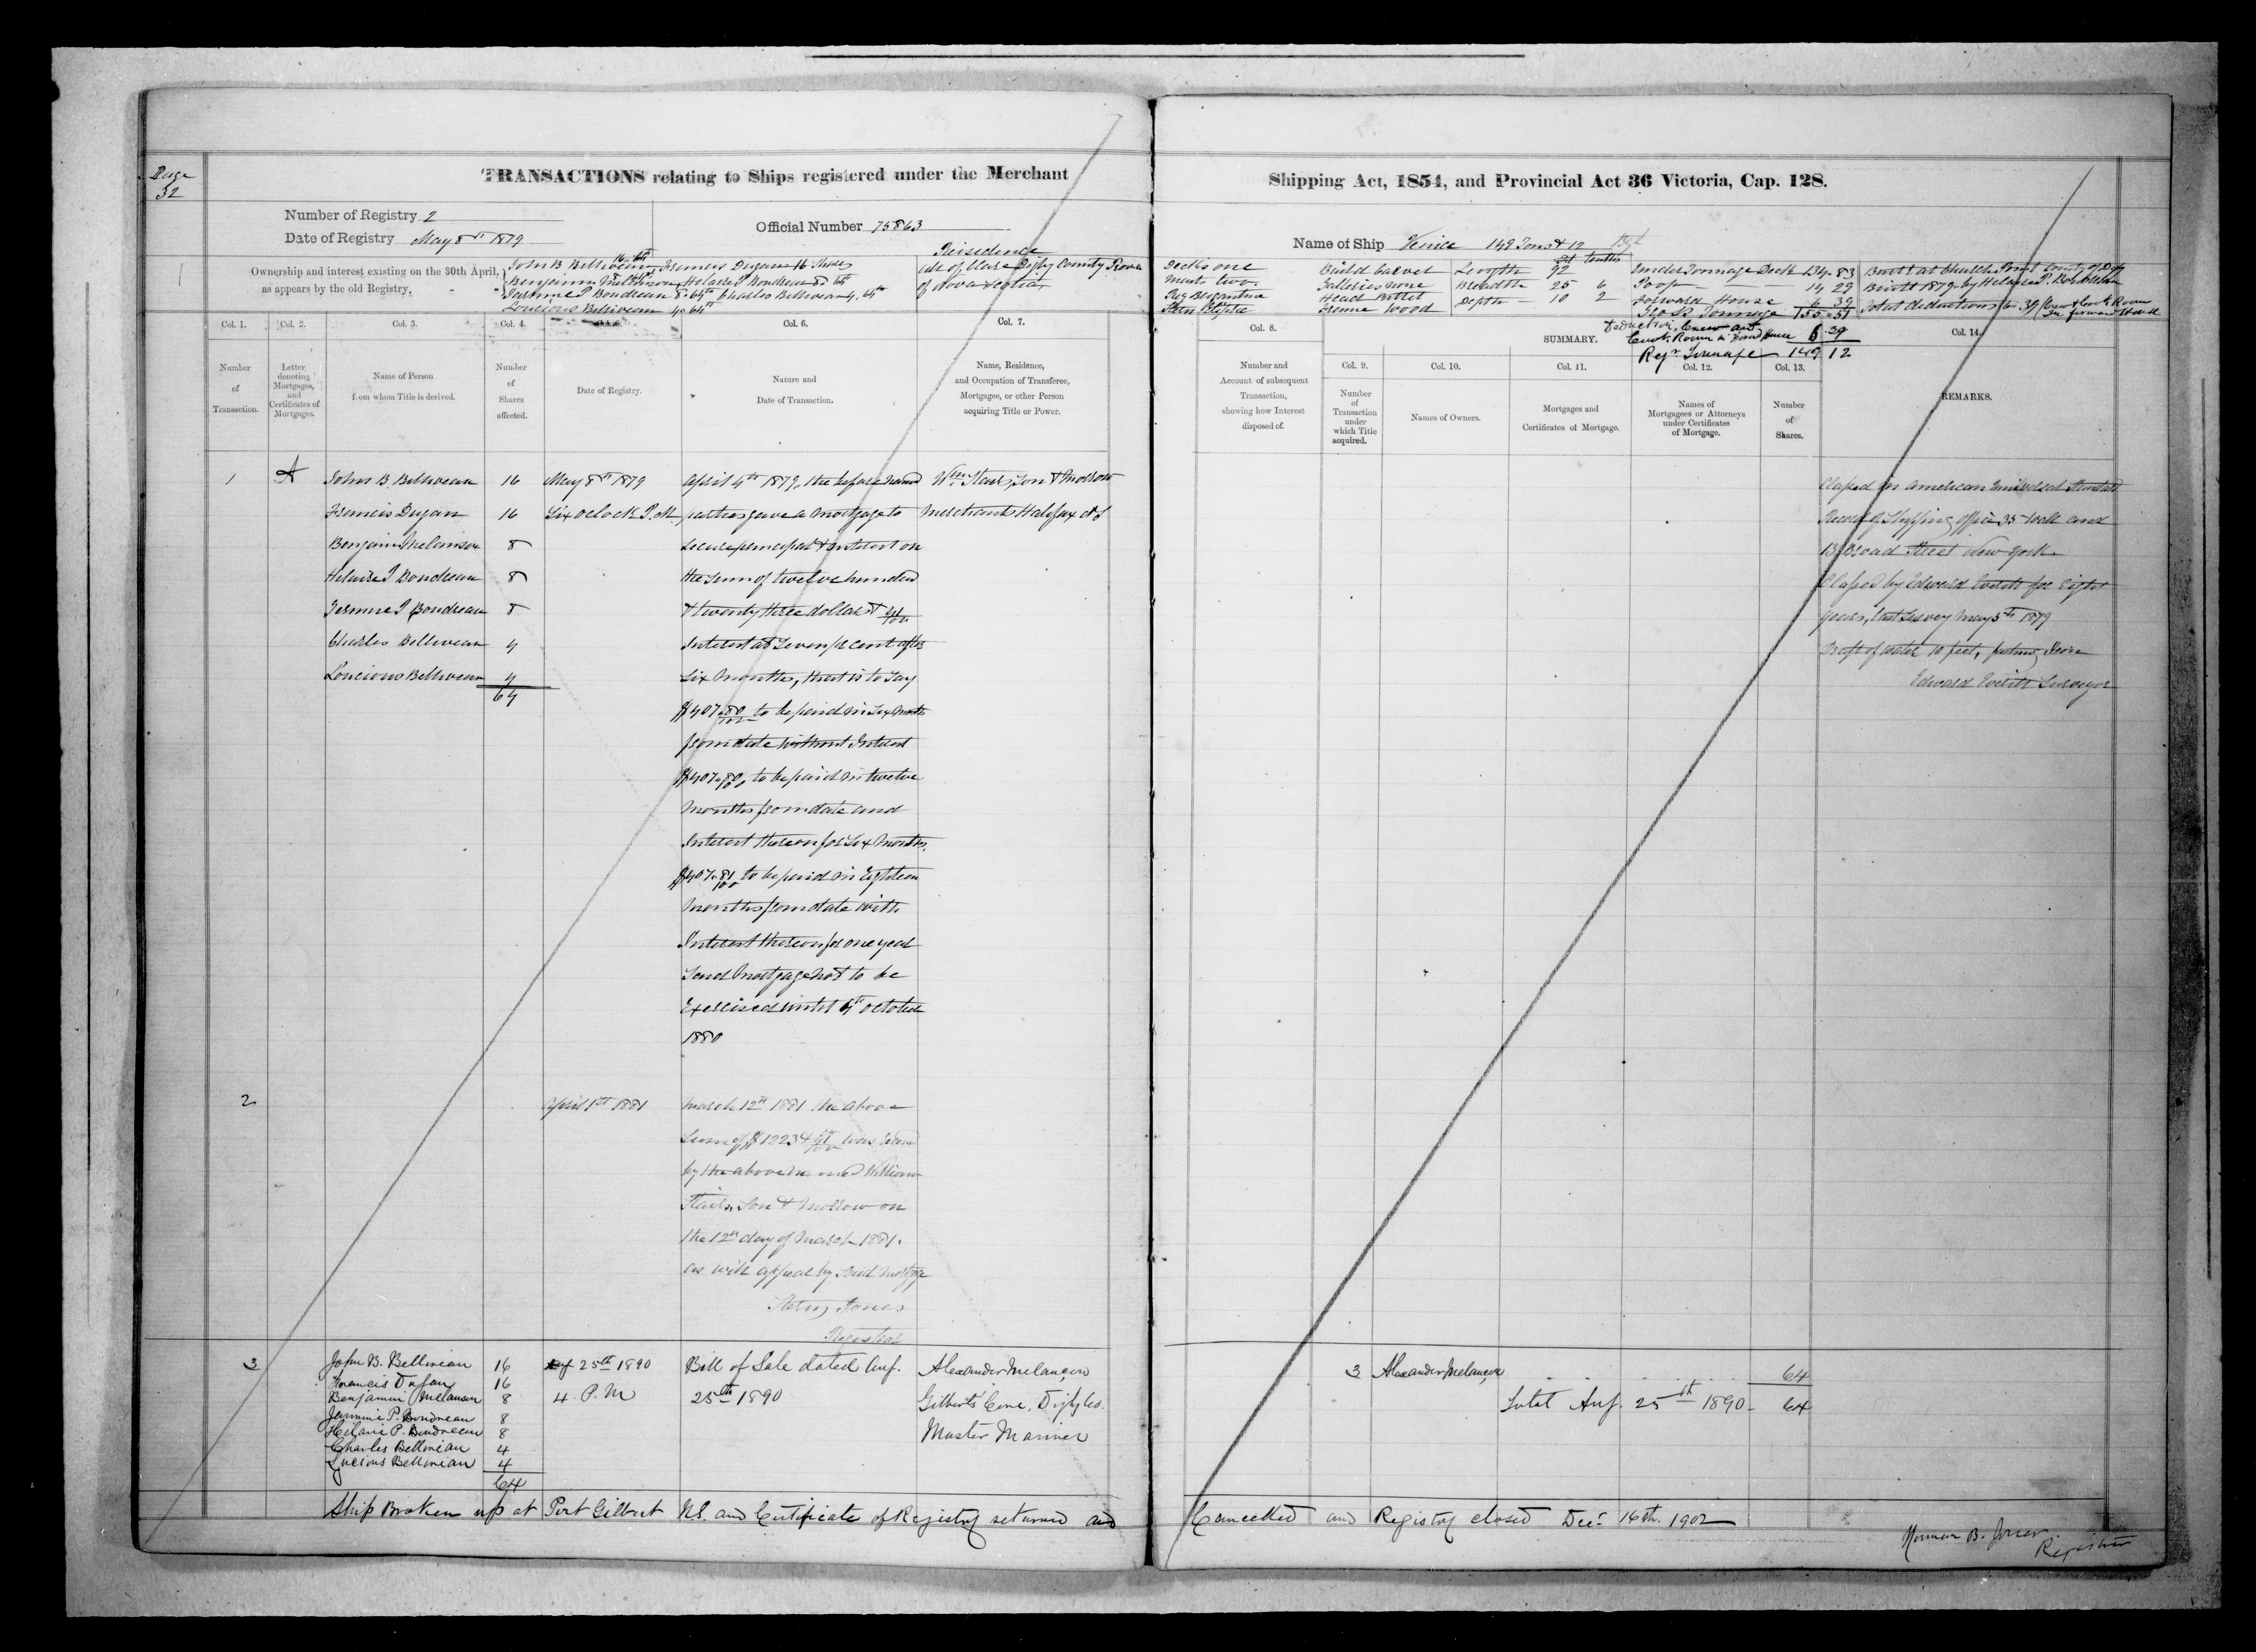 Page
52
TRANSACTIONS relating to Ships registered under the Merchant
Number of Registry 2
Date of Registry May 8th 1879
Official Number 75863
Residence
Ownership and interest existing on the 30th April,
as appears by the old Registry.
John B Belliveau 16.64th Francis Dugan 16 Shares
Benjamin Melanson 8.64th Helaire P Boudreau 8. 64
Jermine P Boudreau 8.64th Charles Belliveau 4.64th
Loucious Belliveau 4.64th
all of Clare Digby County Prov
of Nova Scotia
Col. 1.
Col. 2.
Col. 3.
Col. 4.
Col. 6.
Col. 7.
Number
of
Transaction.
Letter
denoting
Mortgages,
and
Certificates of
Mortgages.
Name of Person
from whom Title is derived.
Number
of
Shares
affected.
Date of Registry.
Nature and
Date of Transaction.
Name, Residence,
and Occupation of Transferee,
Mortgagee, or other Person
acquiring Title or Power.
1 A John B Belliveau 16 May 8th 1879 April 4th 1879, the before named Wm Stairs, Son & Morrow
Francis Dugan 16 Six oclock P.M. parties gave a Mortgage to Merchants Halifax NS
Benjamin Melanson 8 secure principal & interest on
Helaire P Boudreau 8 the sum of twelve hundred
Jermine P Boudreau 8 & twenty three dollars & 41/100
Charles Belliveau 4 Interest at Seven pr cent after
Loucious Belliveau 4 Six Months, that is to Say
64
$407.80/100 to be paid in Six Months
from date without Interest
$407.80/100 to be paid in twelve
Months from date and
Interest thereon for Six Months.
$407.81/100 to be paid in Eighteen
Months from date with
Interest thereon for one year
Said Mortgage Not to be
Exercised until 4th October
1880
2 April 1st 1881 March 12th 1881 the above
Sum of $1223 41/100 was
by the above named William
Stairs, Son & Morrow on
the 12th day of March 1881.
as will appear by Said Mortgage
Henry Jones
Registrar
3 John B. Belliveau 16 Aug 25th 1890 Bill of Sale dated Aug. Alexander Melançon
Francis Dugan 16
Benjamin Melanson 8 4 P.M 25th 1890 Gilberts Cove, Digby Co.
Jermine P. Boudreau 8
Hilaire P. Boudreau 8 Master Mariner
Charles Belliveau 4
Lucious Belliveau 4
64
Ship Broken up at Port Gilbert N.S. and Certificate of Registry returned and
Shipping Act, 1854, and Provincial Act 36 Victoria, Cap. 128.
Name of Ship Venice 149 Tons & 12 Bgt
Decks one Build Carvel Length 92 Under Tonnage Deck 134.83 Built at Church Point County of Digby
Masts two Galleries none Breadth 25 6 Poop 14 29 Built 1879 by Helaire P.
Rig Brigantine Head Billet Depth 10 2 Forward House 6 39 Total deductions 6.39 Crew & Cook Room
Stern Eliptic Frame Wood Gross Tonnage 155.51 in forward House
ft tenths
Deduction, Crew and
Cook Room in Forwd House 6 39
Regr Tonnage 149 12
Col. 8.
SUMMARY.
Col. 14.
Number and
Account of subsequent
Transaction,
showing how Interest
disposed of.
Col. 9.
Number
of
Transaction
under
which Title
acquired.
Col. 10.
Names of Owners.
Col. 11.
Mortgages and
Certificates of Mortgage.
Col. 12.
Names of
Mortgagees or Attorneys
under Certificates
of Mortgage.
Col. 13.
Number
of
Shares.
REMARKS.
Classed in American Universal Standard
Record of Shipping office 35 Wall and
13 Broad Street New York
Classed by Edward Everitt for Eight
years, last Survey May 5th 1879
Draft of water 10 feet, fastning Iron
Edward Everitt Surveyor
3 Alexander Melançon 64
Total Aug. 25th 1890 64
Cancelled and Registry closed Decr 16th. 1902
Norman B. Jones.
Registrar